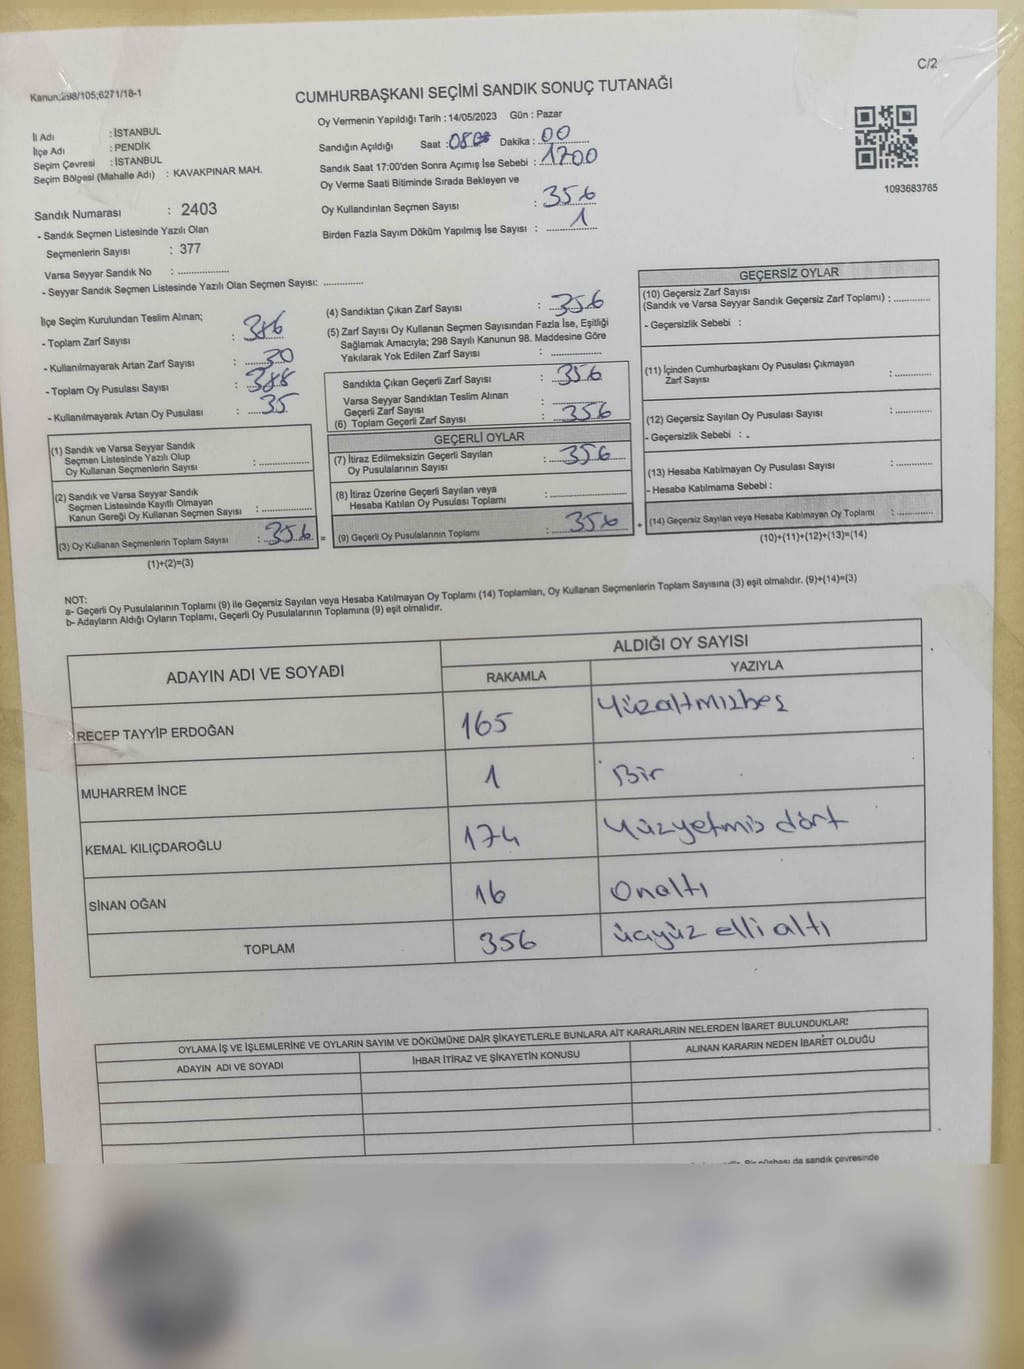 C/2
Kanun;298/105;6271/18-1
CUMHURBAŞKANI SEÇİMİ SANDIK SONUÇ TUTANAĞI
İl Adı : İSTANBUL
İlçe Adı : PENDİK
Seçim Çevresi : İSTANBUL
Seçim Bölgesi (Mahalle Adı) : KAVAKPINAR MAH.
Sandık Numarası : 2403
- Sandık Seçmen Listesinde Yazılı Olan
Seçmenlerin Sayısı : 377
Varsa Seyyar Sandık No : ..............
- Seyyar Sandık Seçmen Listesinde Yazılı Olan Seçmen Sayısı: ............
Oy Vermenin Yapıldığı Tarih : 14/05/2023 Gün : Pazar
Sandığın Açıldığı Saat : 08 Dakika : 00
Sandık Saat 17:00'den Sonra Açımış İse Sebebi : 1700
Oy Verme Saati Bitiminde Sırada Bekleyen ve
Oy Kullandırılan Seçmen Sayısı : 356
Birden Fazla Sayım Döküm Yapılmış İse Sayısı : 1
1093683765
İlçe Seçim Kurulundan Teslim Alınan;
- Toplam Zarf Sayısı : 386
- Kullanılmayarak Artan Zarf Sayısı : 30
- Toplam Oy Pusulası Sayısı : 388
- Kullanılmayarak Artan Oy Pusulası : 35
(1) Sandık ve Varsa Seyyar Sandık
Seçmen Listesinde Yazılı Olup
Oy Kullanan Seçmenlerin Sayısı : ..............
(2) Sandık ve Varsa Seyyar Sandık
Seçmen Listesinde Kayıtlı Olmayan
Kanun Gereği Oy Kullanan Seçmen Sayısı : ..............
(3) Oy Kullanan Seçmenlerin Toplam Sayısı : 356 =
(1)+(2)=(3)
(4) Sandıktan Çıkan Zarf Sayısı : 356
(5) Zarf Sayısı Oy Kullanan Seçmen Sayısından Fazla İse, Eşitliği
Sağlamak Amacıyla; 298 Sayılı Kanunun 98. Maddesine Göre
Yakılarak Yok Edilen Zarf Sayısı : ..............
Sandıkta Çıkan Geçerli Zarf Sayısı : 356
Varsa Seyyar Sandıktan Teslim Alınan
Geçerli Zarf Sayısı : ..............
(6) Toplam Geçerli Zarf Sayısı : 356
GEÇERLİ OYLAR
(7) İtiraz Edilmeksizin Geçerli Sayılan
Oy Pusulalarının Sayısı : 356
(8) İtiraz Üzerine Geçerli Sayılan veya
Hesaba Katılan Oy Pusulası Toplamı : ..............
(9) Geçerli Oy Pusulalarının Toplamı : 356 +
GEÇERSİZ OYLAR
(10) Geçersiz Zarf Sayısı
(Sandık ve Varsa Seyyar Sandık Geçersiz Zarf Toplamı) : ............
- Geçersizlik Sebebi :
(11) İçinden Cumhurbaşkanı Oy Pusulası Çıkmayan
Zarf Sayısı : ............
(12) Geçersiz Sayılan Oy Pusulası Sayısı : ............
- Geçersizlik Sebebi : .
(13) Hesaba Katılmayan Oy Pusulası Sayısı : ............
- Hesaba Katılmama Sebebi :
(14) Geçersiz Sayılan veya Hesaba Katılmayan Oy Toplamı : ............
(10)+(11)+(12)+(13)=(14)
NOT:
a- Geçerli Oy Pusulalarının Toplamı (9) ile Geçersiz Sayılan veya Hesaba Katılmayan Oy Toplamı (14) Toplamları, Oy Kullanan Seçmenlerin Toplam Sayısına (3) eşit olmalıdır. (9)+(14)=(3)
b- Adayların Aldığı Oyların Toplamı, Geçerli Oy Pusulalarının Toplamına (9) eşit olmalıdır.
ADAYIN ADI VE SOYADI ALDIĞI OY SAYISI
RAKAMLA YAZIYLA
RECEP TAYYİP ERDOĞAN 165 Yüzaltmışbeş
MUHARREM İNCE 1 Bir
KEMAL KILIÇDAROĞLU 174 Yüzyetmiş dört
SİNAN OĞAN 16 Onaltı
TOPLAM 356 üçyüz elli altı
OYLAMA İŞ VE İŞLEMLERİNE VE OYLARIN SAYIM VE DÖKÜMÜNE DAİR ŞİKAYETLERLE BUNLARA AİT KARARLARIN NELERDEN İBARET BULUNDUKLARI
ADAYIN ADI VE SOYADI İHBAR İTİRAZ VE ŞİKAYETİN KONUSU ALINAN KARARIN NEDEN İBARET OLDUĞU
Bir nüshası da sandık çevresinde